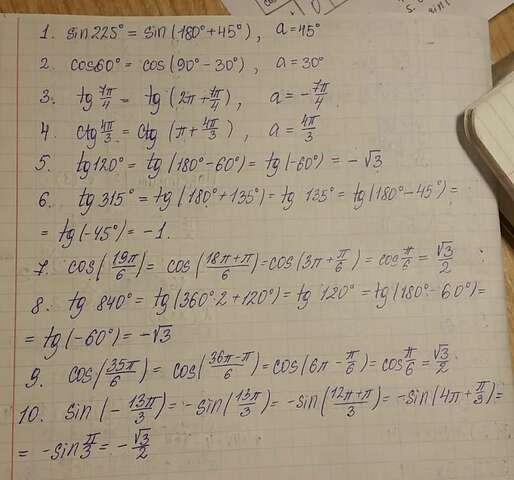 1. sin 225° = sin (180° + 45°), a = 45°
2. cos 60° = cos (90° - 30°), a = 30°
3. tg 7π/4 = tg (2π + 7π/4), a = - 7π/4
4. ctg 4π/3 = ctg (π + 4π/3), a = 4π/3
5. tg 120° = tg (180° - 60°) = tg (-60°) = -√3
6. tg 315° = tg (180° + 135°) = tg 135° = tg (180° - 45°) =
= tg (-45°) = -1.
7. cos (19π/6) = cos (18π+π/6) = cos (3π + π/6) = cos π/6 = √3/2
8. tg 840° = tg (360° · 2 + 120°) = tg 120° = tg (180° - 60°) =
= tg (-60°) = -√3
9. cos (35π/6) = cos (36π-π/6) = cos (6π - π/6) = cos π/6 = √3/2.
10. sin (- 13π/3) = -sin (13π/3) = -sin (12π+π/3) = -sin (4π + π/3) =
= -sin π/3 = - √3/2